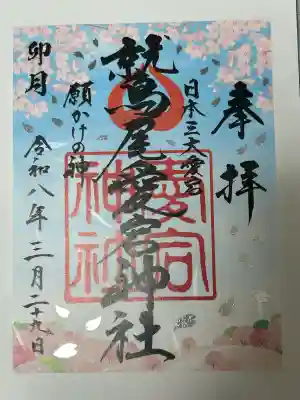 奉拝
日本三大愛宕
鷲尾愛宕神社
願かけの神
卯月
令和八年三月二十九日
愛宕
神社